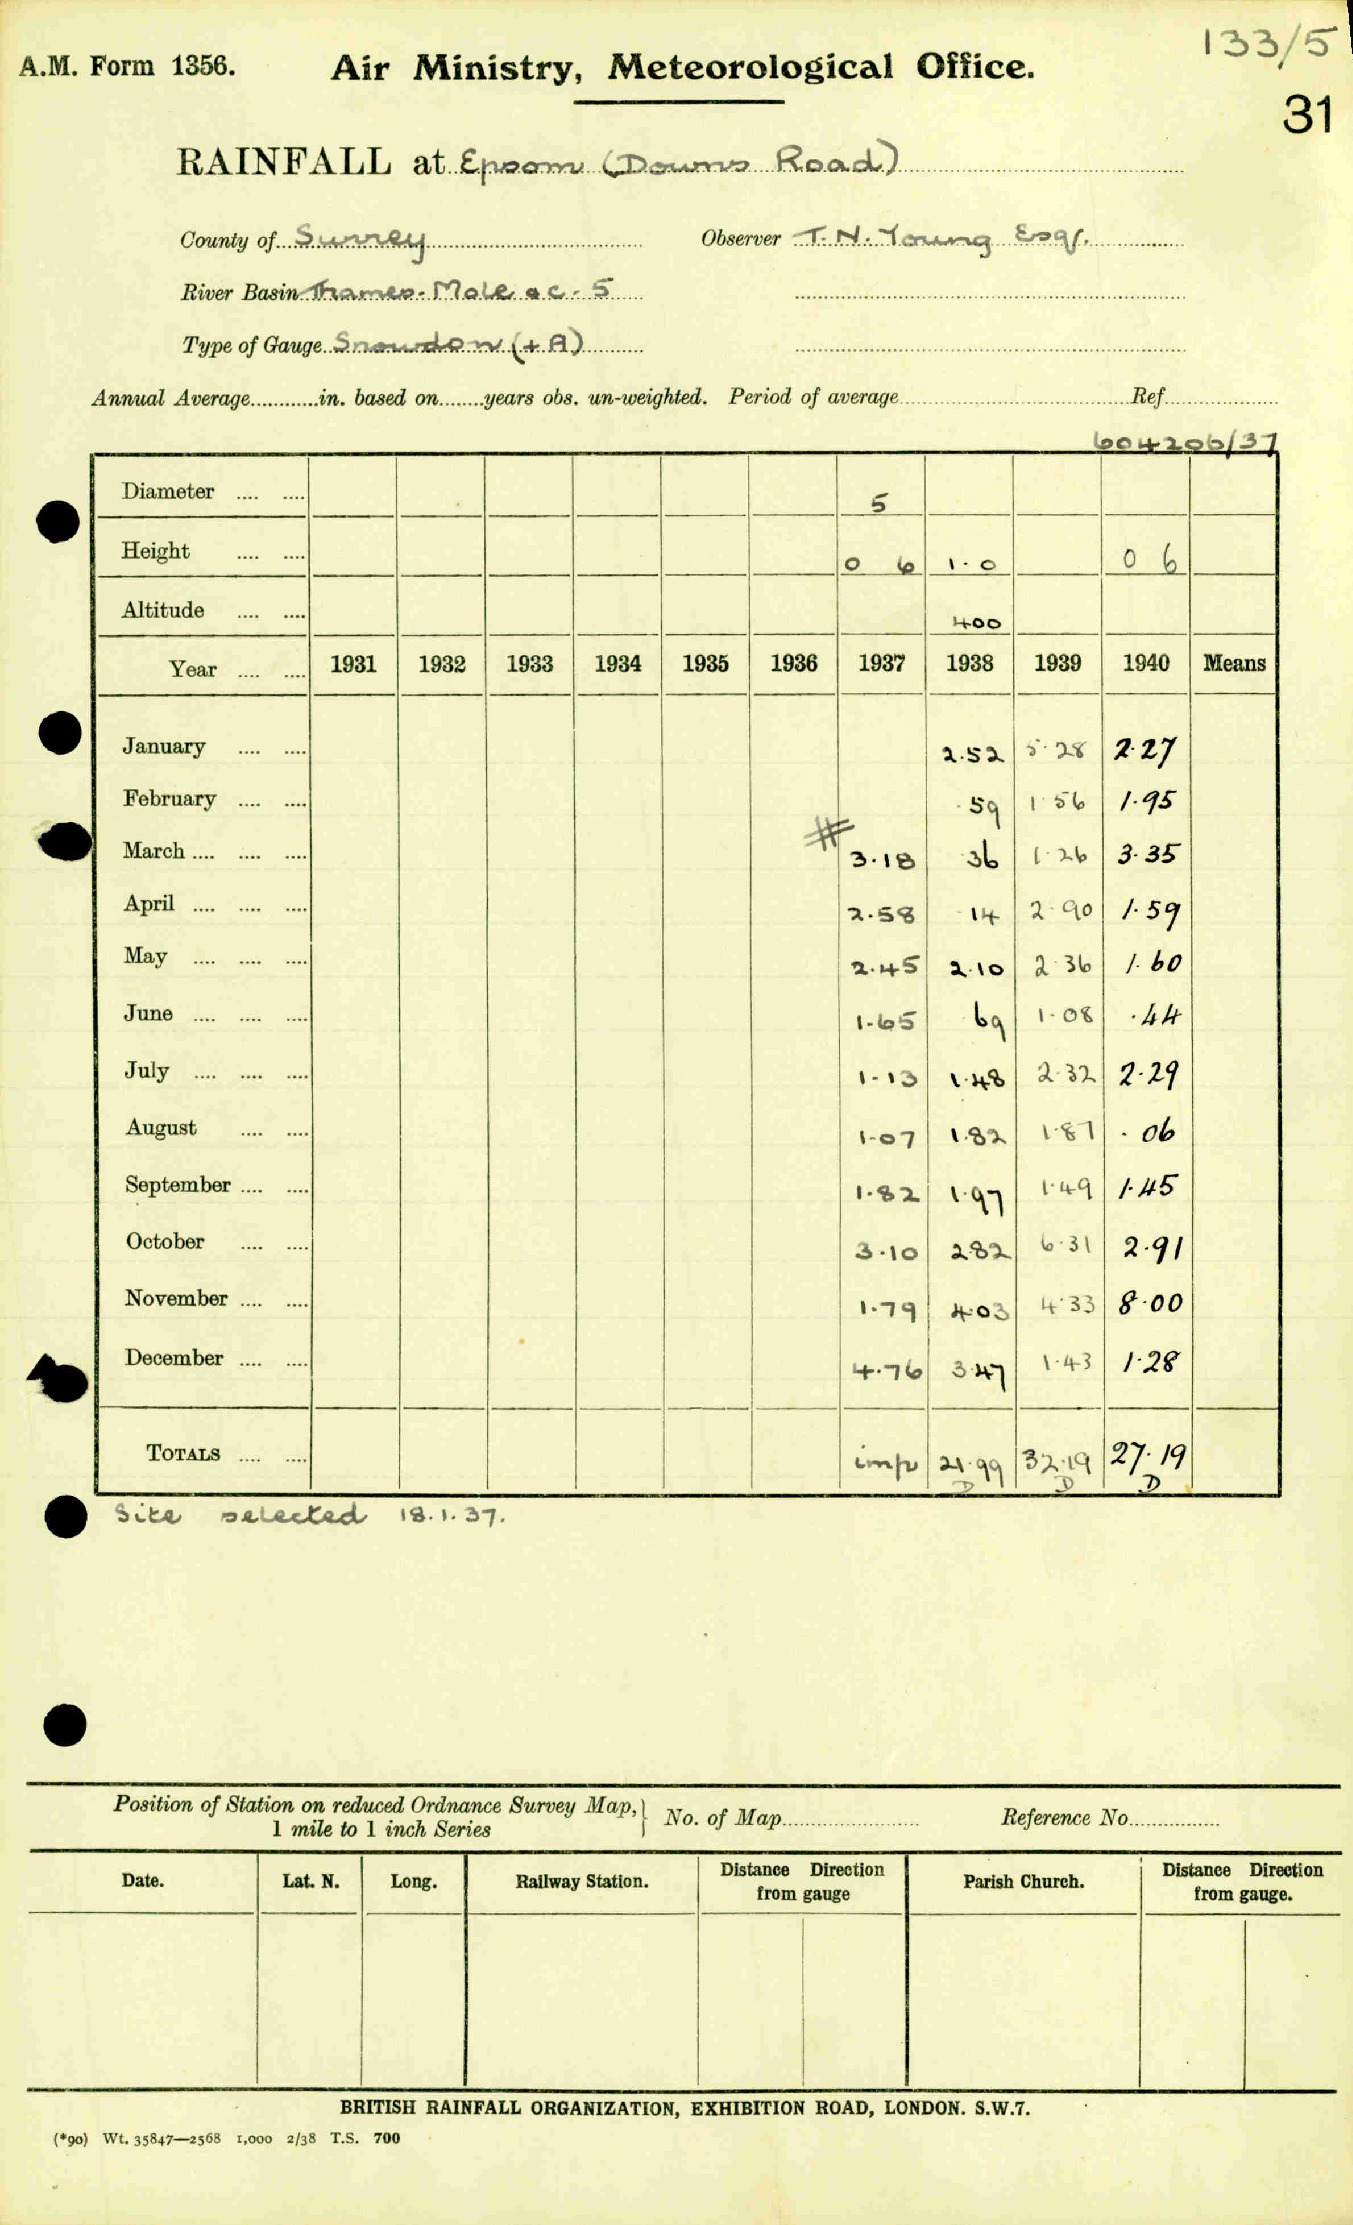 133/5
A.M. Form 1356. Air Ministry, Meteorological Office.
31
RAINFALL at Epsom (Downs Road)
County of Surrey Observer T. N. Young Esqr.
River Basin Thames - Mole &c - 5
Type of Gauge Snowdon (+ A)
Annual Average............in. based on........years obs. un-weighted. Period of average Ref.
604206/37
Diameter .... .... 5
Height .... .... 0 6 1·0 0 6
Altitude .... .... 400
Year .... .... 1931 1932 1933 1934 1935 1936 1937 1938 1939 1940 Means
January .... .... 2·52 5·28 2·27
February .... .... ·59 1·56 1·95
March .... .... .... # 3·18 ·36 1·26 3·35
April .... .... .... 2·58 ·14 2·90 1·59
May .... .... .... 2·45 2·10 2·36 1·60
June .... .... .... 1·65 69 1·08 ·44
July .... .... .... 1·13 1·48 2·32 2·29
August .... .... 1·07 1·82 1·87 ·06
September .... .... 1·82 1·97 1·49 1·45
October .... .... 3·10 2·82 6·31 2·91
November .... .... 1·79 4·03 4·33 8·00
December .... .... 4·76 3·47 1·43 1·28
TOTALS .... .... imp 21·99 32·19 27·19
D D D
Site selected 18.1.37.
Position of Station on reduced Ordnance Survey Map, } No. of Map Reference No.
1 mile to 1 inch Series
Date. Lat. N. Long. Railway Station. Distance Direction from gauge Parish Church. Distance Direction from gauge.
BRITISH RAINFALL ORGANIZATION, EXHIBITION ROAD, LONDON. S.W.7.
(*90) Wt. 35847—2568 1,000 2/38 T.S. 700